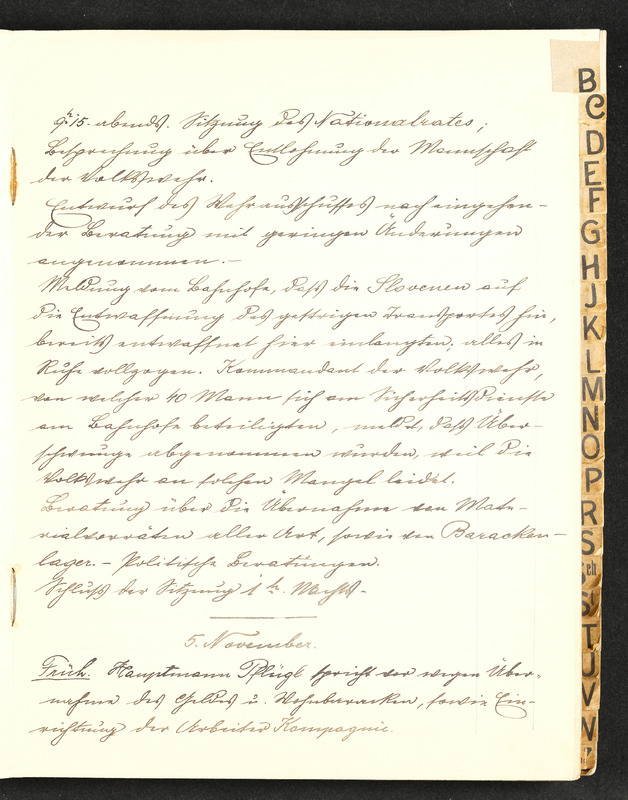 9h 15. abends. Sitzung des Nationalrates;
Besprechung über Entlohnung der Mannschaft
der Volkswehr.
Entwurf des Wehrausschusses nach eingehen-
der Beratung mit geringen Änderungen
angenommen.—
Meldung vom Bahnhofe, daß die Slovenen auf
die Entwaffnung des gestrigen Transportes hin,
bereits entwaffnet hier einlangten; alles in
Ruhe vollzogen. Kommandant der Volkswehr,
von welcher 40 Mann sich am Sicherheitsdienste
am Bahnhofe beteiligten, meldet, daß Über-
schwunge abgenommen wurden, weil die
Volkswehr an solchen Mangel leidet.
Beratung über die Übernahme von Mate-
rialvorräten aller Art, sowie von Baracken-
lager. — Politische Beratungen.
Schluß der Sitzung 1 h. Nachts.
5. November.
Früh. Hauptmann Pflügl spricht vor wegen Über-
nahme des Geldes u. Wohnbaracken, sowie Ein-
richtung der Arbeiter Kompagnie.
B
C
D
E
F
G
H
J
K
L
M
N
O
P
R
S
Sch
St
T
U
V
W